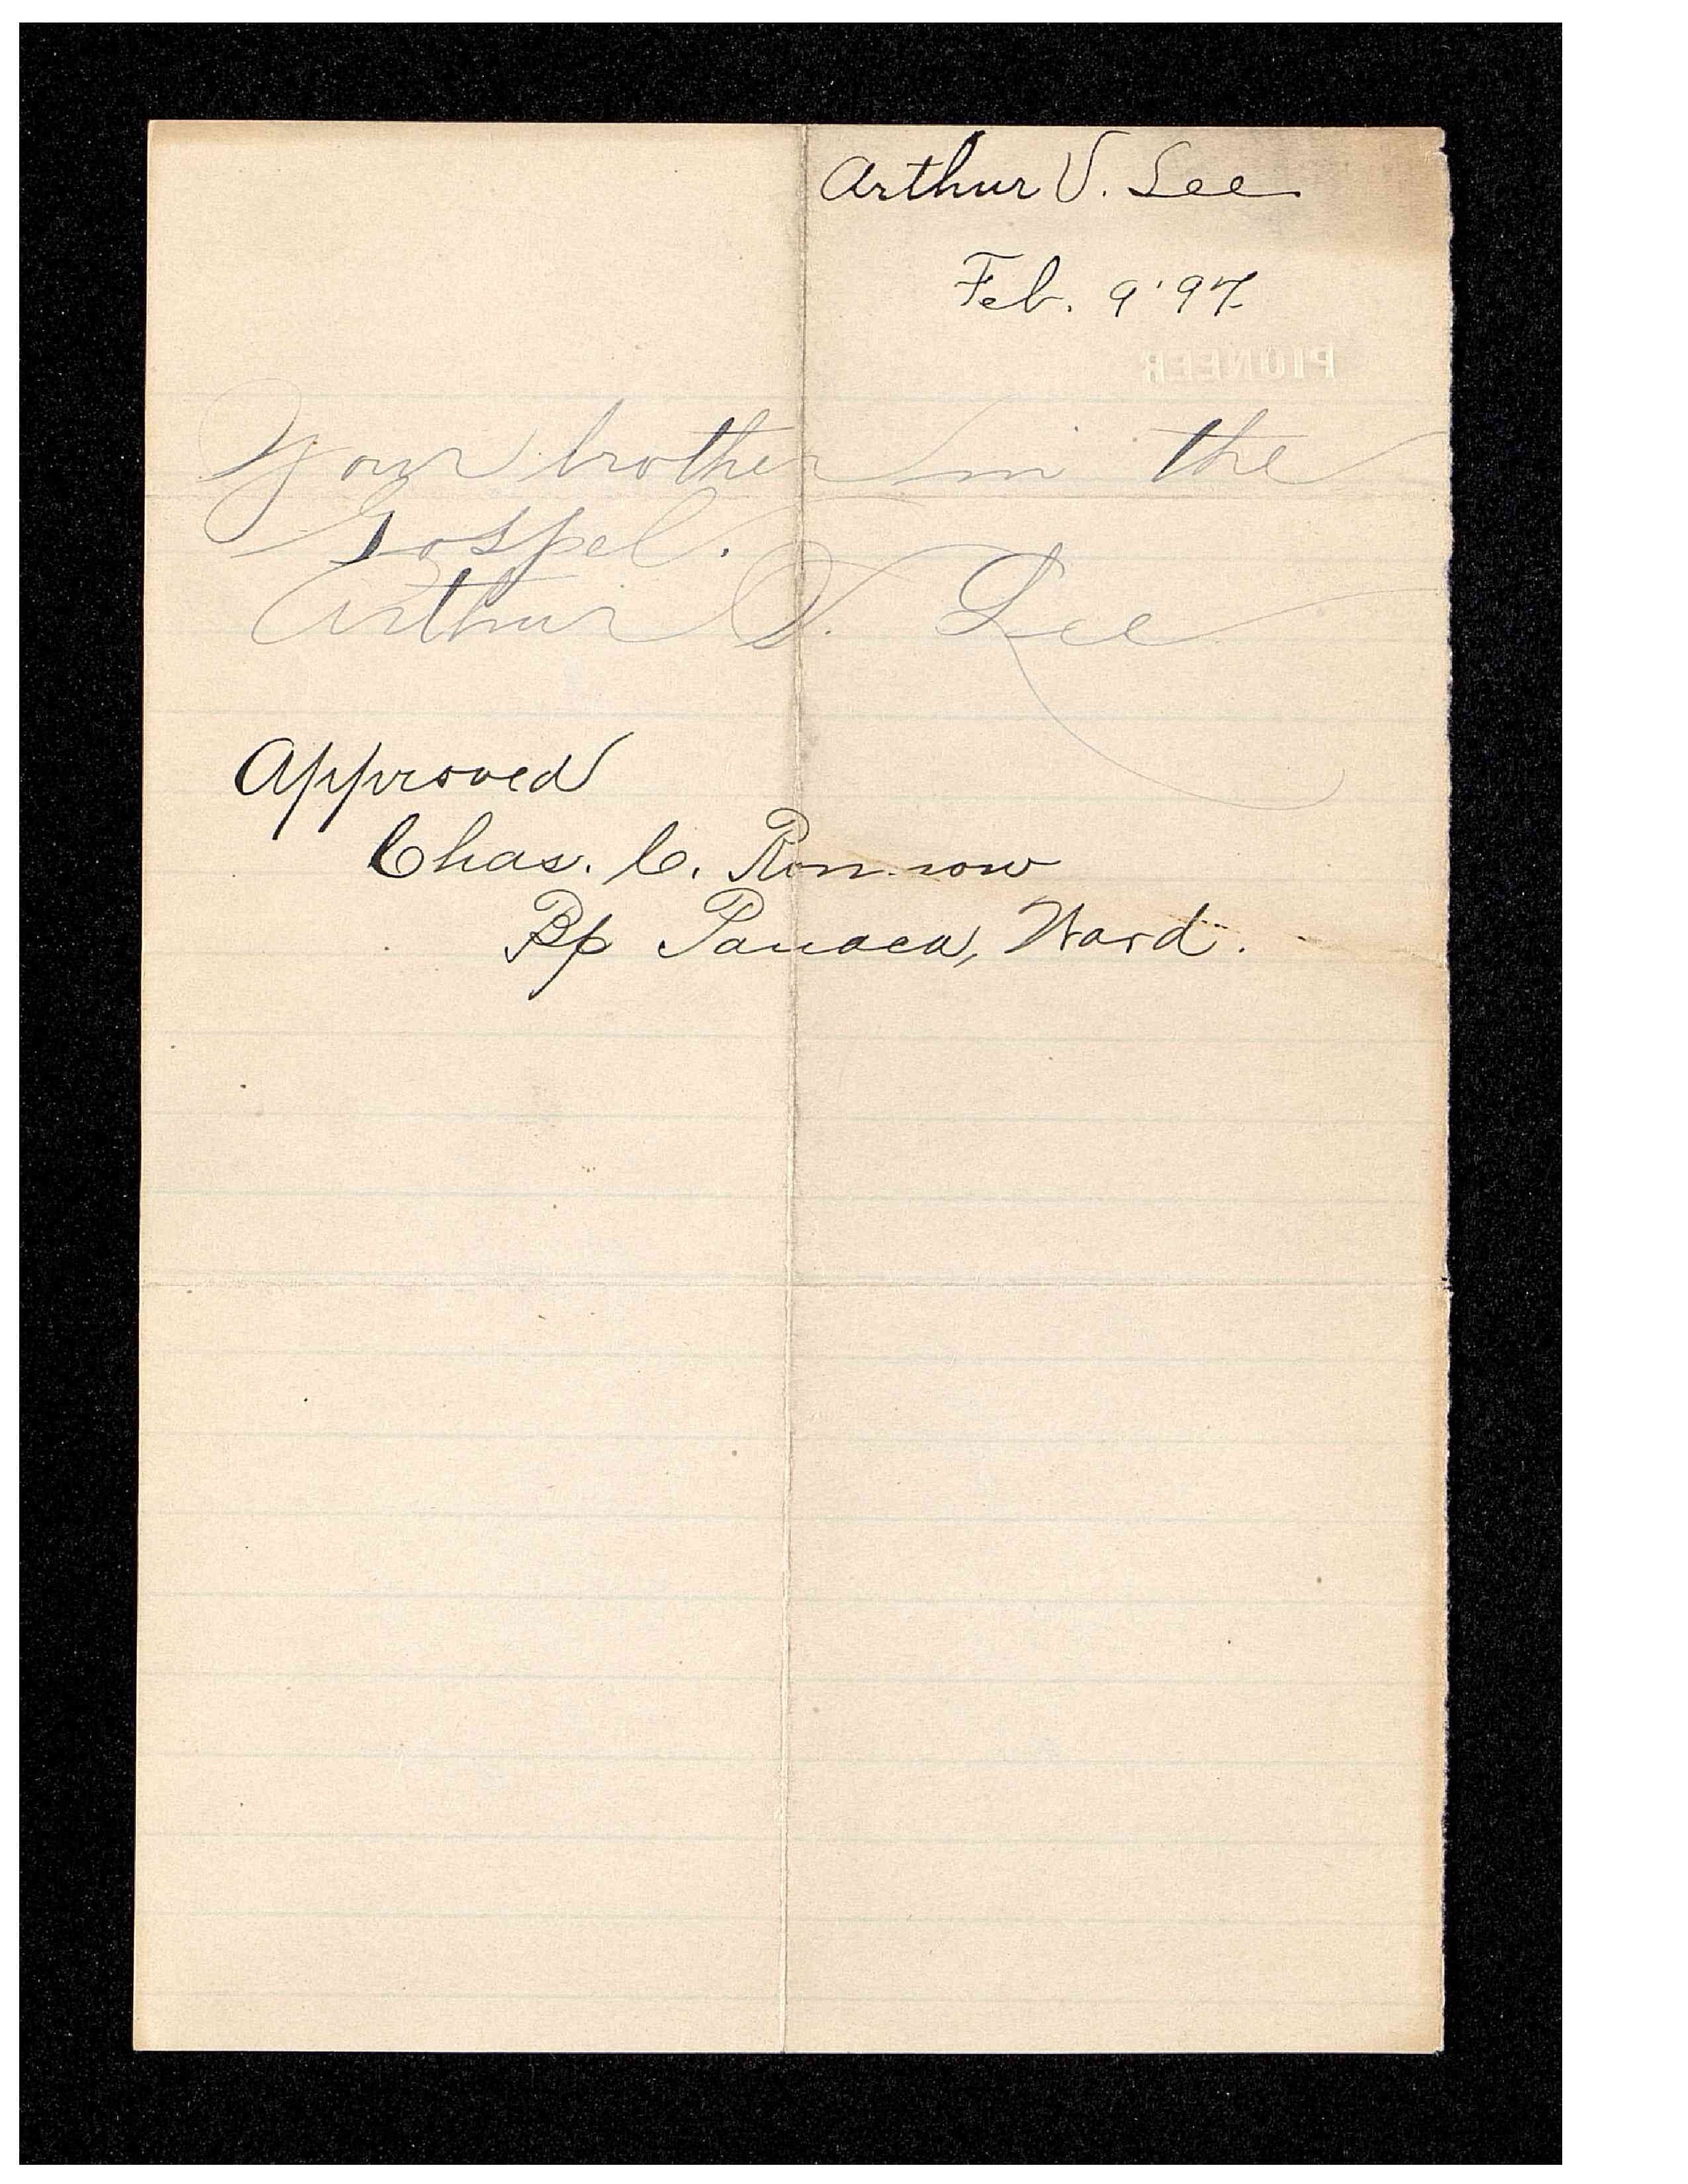 Arthur V. Lee
Feb. 9' 97
PIONEER
Your brother in the
Gospel.
Arthur V. Lee
Approved
Chas. C. Ronnow
Bp Panaca, Ward.